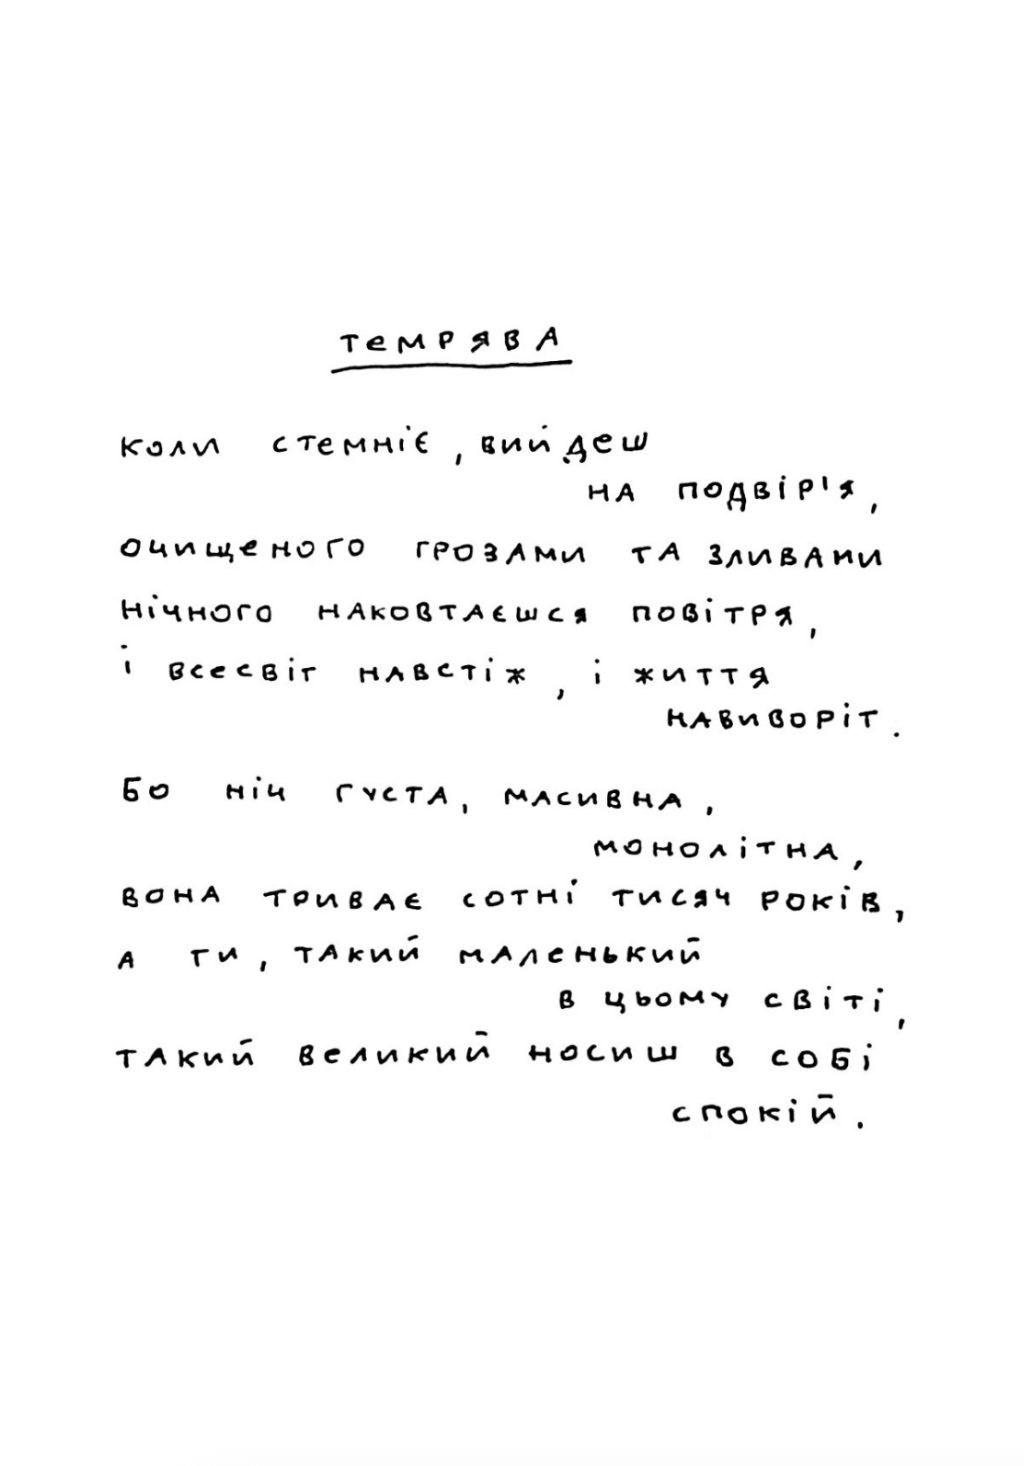 темрява
коли стемніє, вийдеш
на подвір'я,
очищеного грозами та зливами
нічного наковтаєшся повітря,
і всесвіт навстіж, і життя
навиворіт.
Бо ніч густа, масивна,
монолітна,
вона триває сотні тисяч років,
а ти, такий маленький
в цьому світі,
такий великий носиш в собі
спокій.